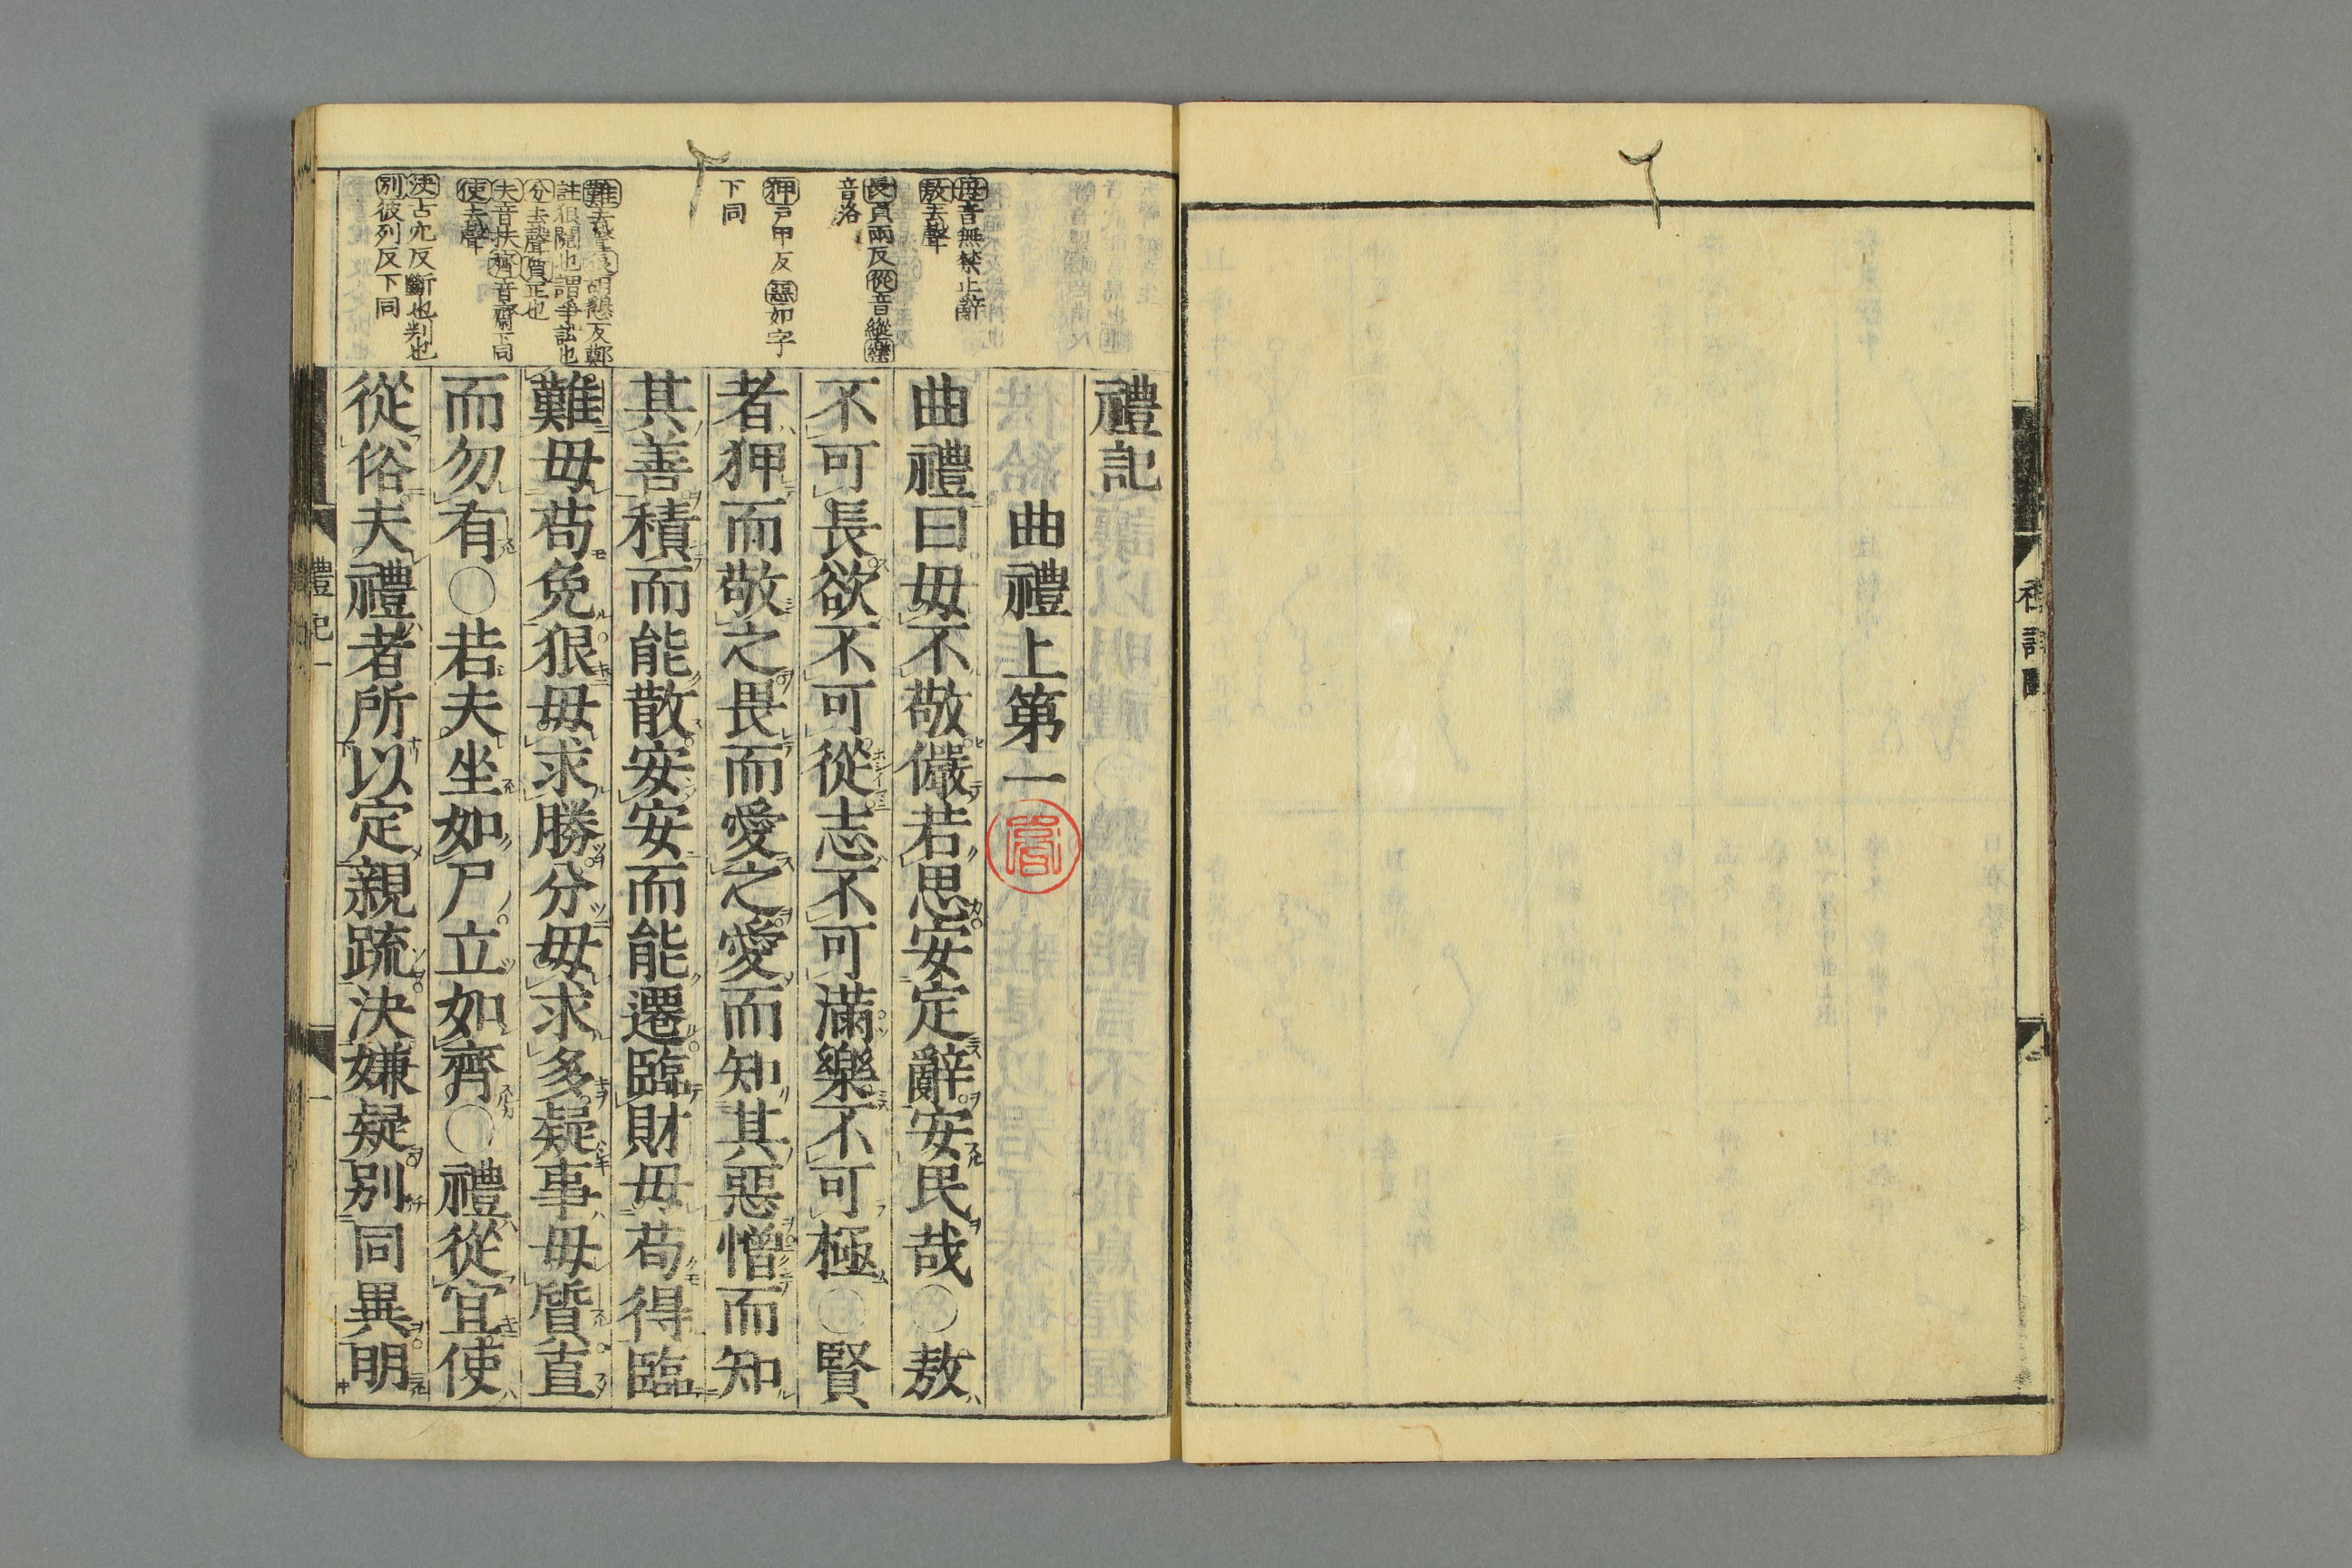 禮記
曲禮上第一
曲禮曰毋不敬儼若思安定辭安民哉○敖
不可長欲不可從志不可滿樂不可極○賢
者狎而敬之畏而愛之愛而知其惡憎而知
其善積而能散安安而能遷臨財毋苟得臨
難毋苟免狠毋求勝分毋求多疑事毋質直
而勿有○若夫坐如尸立如齊○禮從宜使
從俗夫禮者所以定親疏決嫌疑別同異明
毋音無禁止辭
敖去聲
長貞兩反從音縱樂
音洛
狎戸甲反惡如字
下同
難去聲狠胡懇反鄭
註狠鬩也謂爭訟也
分去聲質正也
夫音扶齊音齋下同
使去聲
決古穴反斷也判也
別彼列反下同
禮記一
一